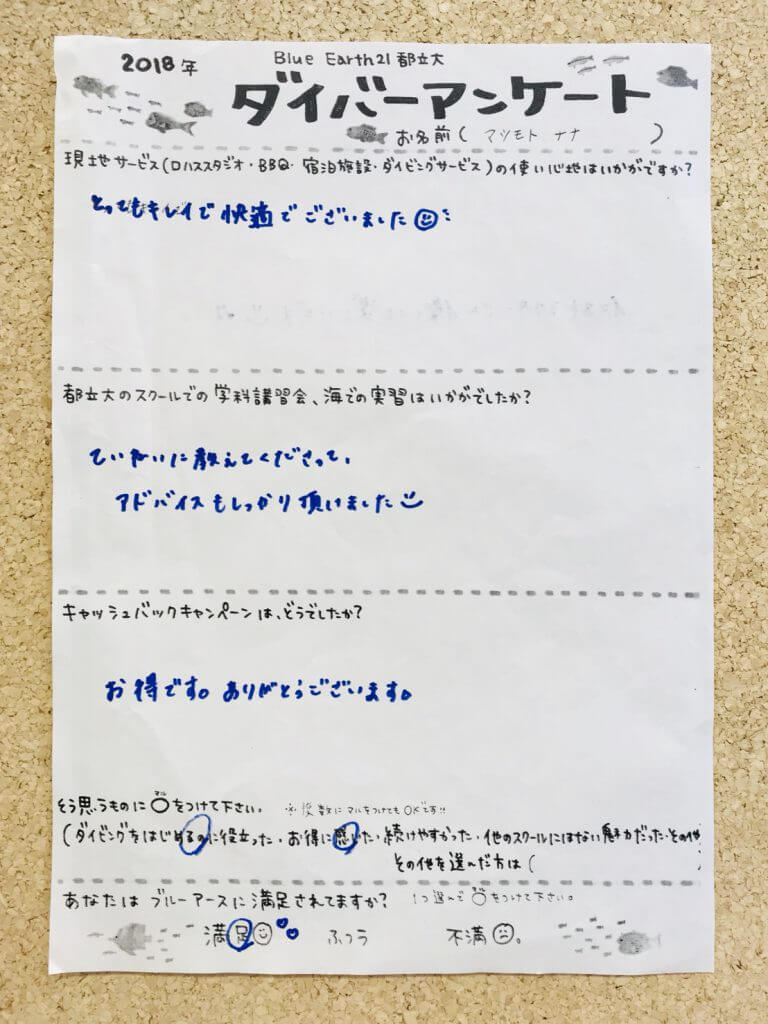 2018年
Blue Earth21 都立大
ダイバーアンケート
お名前( マツモト ナナ )
現地サービス(ロハススタジオ・BBQ・宿泊施設・ダイビングサービス)の使い心地はいかがですか?
とってもキレイで快適でございました
都立大のスクールでの学科講習会、海での実習はいかがでしたか?
ていねいに教えてくださって、
アドバイスもしっかり頂けました
キャッシュバックキャンペーンは、どうでしたか?
お得です。ありがとうございます。
そう思うものに〇をつけて下さい。 ※複数にマルをつけてもOKです!!
マル
(ダイビングをはじめるのに役立った・お得に感じた・続けやすかった・他のスクールにはない魅力だった・その他
その他を選んだ方は(
あなたはブルーアースに満足されてますか? 1つ選んで〇をつけて下さい。
満足 ふつう 不満。